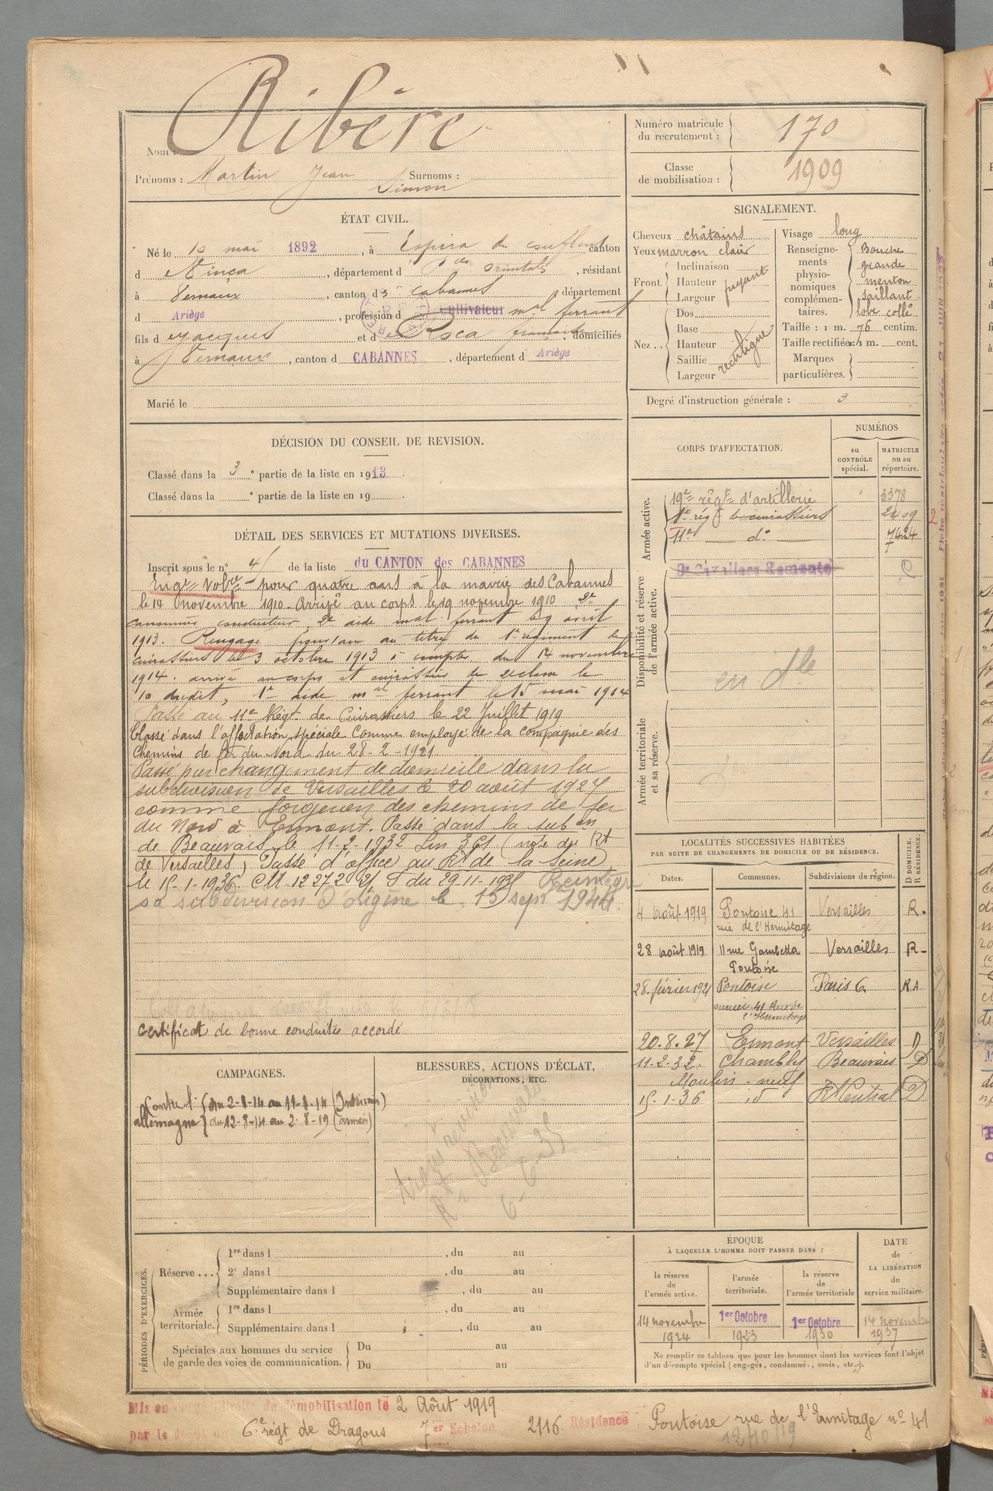 Ribère
Nom :
Prénoms : Martin Jean Surnoms :
Simon
Numéro matricule du recrutement : 170
Classe de mobilisation : 1909
ÉTAT CIVIL.
Né le 10 mai 1892, à Espira de conflent canton
d Vinça, département d Pées orientales, résidant
à Vernaux, canton d es cabannes département
d Ariège, profession d cultivateur mal ferrant
fils d Jacques et d Roca, domiciliés
à Vernaux, canton d CABANNES, département d Ariège
Marié le
SIGNALEMENT.
Cheveux châtains
Yeux marron clair
Front. Inclinaison
Hauteur fuyant
Largeur
Nez. Dos
Base
Hauteur rectiligne
Saillie
Largeur
Visage long
Renseignements physionomiques complémentaires. Bouche grande menton saillant lobe collé
Taille : 1 m. 76 centim.
Taille rectifiée : 1 m. cent.
Marques particulières.
Degré d'instruction générale : 3
DÉCISION DU CONSEIL DE REVISION.
Classé dans la 3e partie de la liste en 1913.
Classé dans la e partie de la liste en 19
CORPS D'AFFECTATION.
NUMÉROS
au CONTRÔLE spécial.
MATRICULE ou au répertoire.
Armée active.
19e régt d'artillerie 3378
1er rég de cuirassiers 2409
11e do 7424
Disponibilité et réserve de l'armée active.
Armée territoriale et sa réserve.
DÉTAIL DES SERVICES ET MUTATIONS DIVERSES.
Inscrit sous le n° 4 de la liste du CANTON des CABANNES
Engé volre pour quatre ans à la mairie des Cabannes
le 14 novembre 1910. Arrivé au corps le 19 novembre 1910 2e
canonnier conducteur, 2e aide mal ferrant le 9 avril
1913. Rengagé pour 1 an au titre du 1er régiment de
cuirassiers le 3 octobre 1913 à compter du 14 novembre
1914. arrivé au corps et cuirassier de classe le
10 dudit, 1er aide mal ferrant le 15 mai 1914
Passé au 11e Régt de Cuirassiers le 22 Juillet 1919
Classé dans l'affectation spéciale comme employé de la compagnie des
chemins de fer du Nord du 28-2-1921
Passé par changement de domicile dans la
subdivision de Versailles le 20 août 1927
comme forgeron des chemins de fer
du Nord à Ermont. Passé dans la subon
de Beauvais le 11-2-1932 (note du Rt
de Versailles) Passé d'office au Rt de la Seine
le 15-1-1936. CM 12727 du 29-11-1935 Réintégré
sa subdivision d'origine le 15 sept 1944.
certificat de bonne conduite accordé
LOCALITÉS SUCCESSIVES HABITÉES
PAR SUITE DE CHANGEMENTS DE DOMICILE OU DE RÉSIDENCE.
Dates. Communes. Subdivisions de région. D DOMICILE. R RÉSIDENCE.
4 août 1919 Pontoise 41 rue de l'Hermitage Versailles R.
28 août 1919 11 rue Gambetta Pontoise Versailles R
28 février 1921 Pontoise 41 Rue de l'Hermitage Paris 6 RA
20.8.27 Ermont Versailles D
11-2-32 Chambly Beauvais D
Moulin-neuf
15-1-36 id Rt Central D
CAMPAGNES.
Contre l'allemagne du 2-8-14 au 11-8-14 (Intérieur)
du 12-8-14 au 2-8-19 (armées)
BLESSURES, ACTIONS D'ÉCLAT, DÉCORATIONS, ETC.
Beauvais
6-6-35
PÉRIODES D'EXERCICES.
Réserve ... 1re dans l , du au
2e dans l , du au
Supplémentaire dans l , du au
Armée territoriale. 1re dans l , du au
Supplémentaire dans l , du au
Spéciales aux hommes du service de garde des voies de communication. Du au
Du au
ÉPOQUE
À LAQUELLE L'HOMME DOIT PASSER DANS :
la réserve de l'armée active. l'armée territoriale. la réserve de l'armée territoriale
DATE de LA LIBÉRATION du service militaire.
14 novembre 1924
1er Octobre 1923
1er Octobre 1930
14 novembre 1937
Ne remplir ce tableau que pour les hommes dont les services font l'objet
d'un décompte spécial (engagés, condamnés, omis, etc.).
Mis en congé illimité de démobilisation le 2 Août 1919
par le dépôt du 6e régt de Dragons 7er Echelon 2116 Résidence Pontoise rue de l'Ermitage n° 41
12/10/19